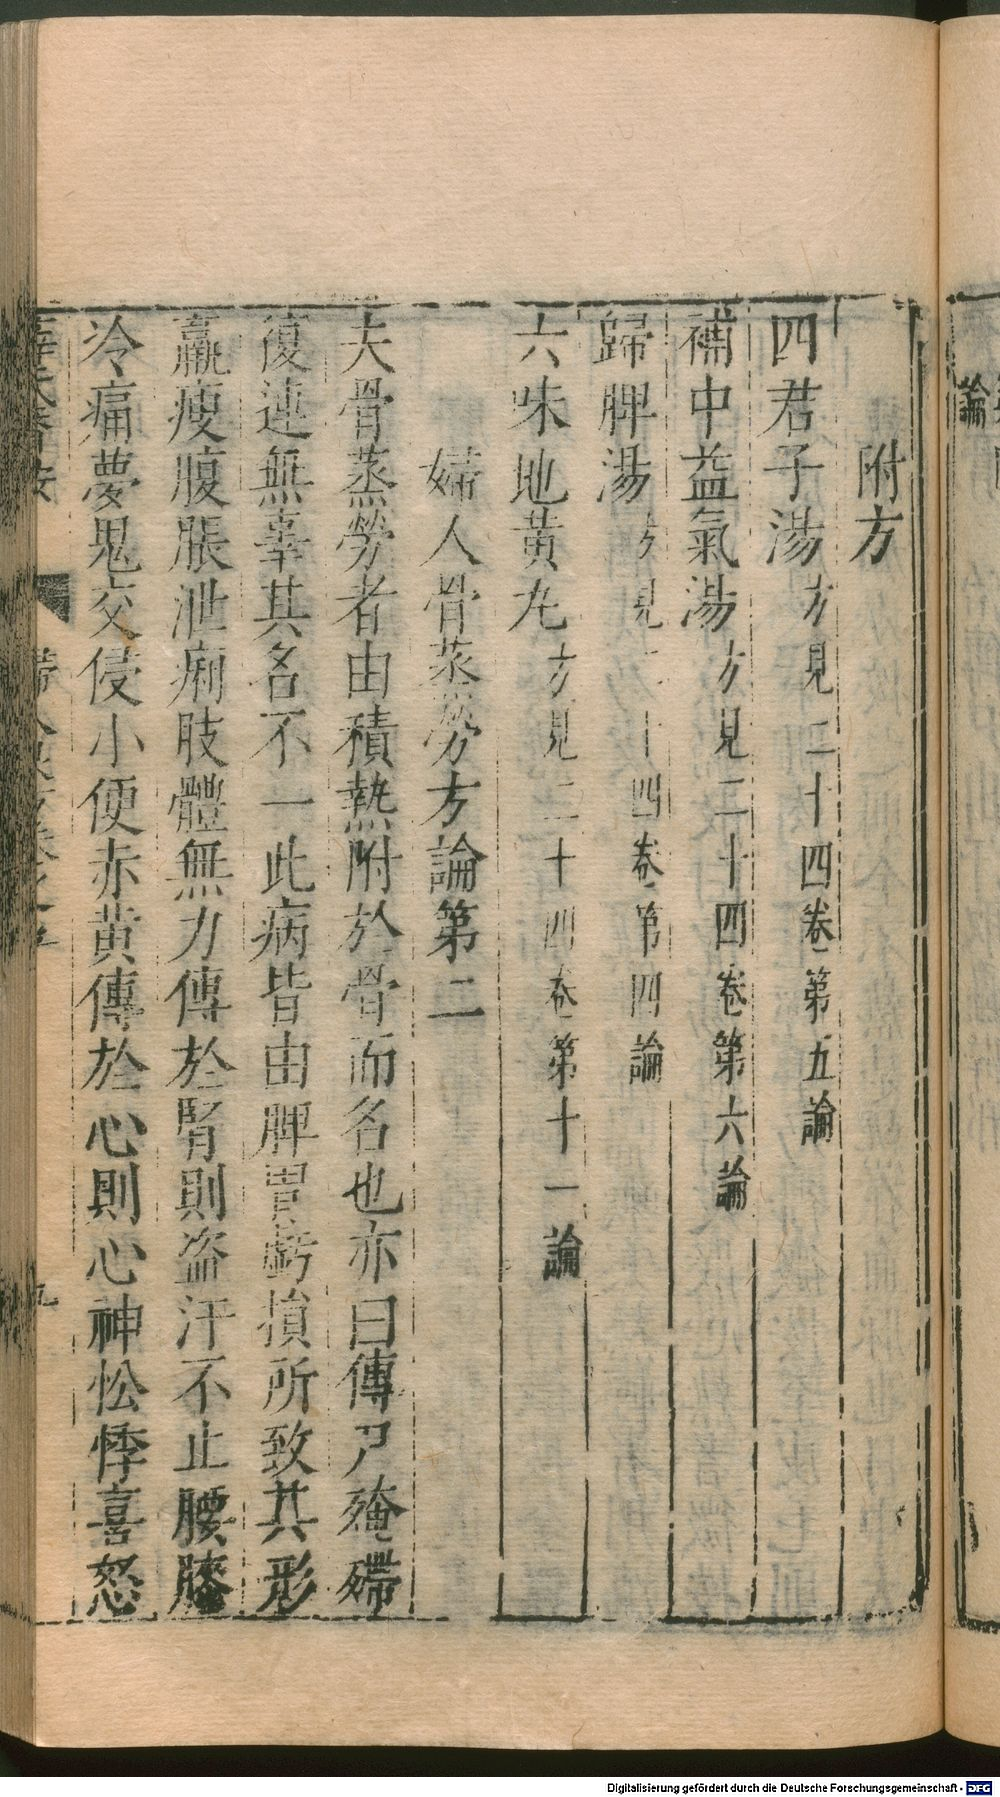 附方
四君子湯方見二十四卷第五論
補中益氣湯方見二十四卷第六論
歸脾湯方見二十四卷第四論
六味地黃丸方見二十四卷第十一論
婦人骨蒸勞方論第二
夫骨蒸勞者由積熱附於骨而名也亦曰傳尸殗殢
復連無辜其名不一此病皆由脾胃虧損所致其形
羸瘦腹脹泄痢肢體無力傳於腎則盗汗不止腰膝
冷痛夢鬼交侵小便赤黄傳於心則心神忪悸喜怒
論
九
Digitalisierung gefördert durch die Deutsche Forschungsgemeinschaft - DFG